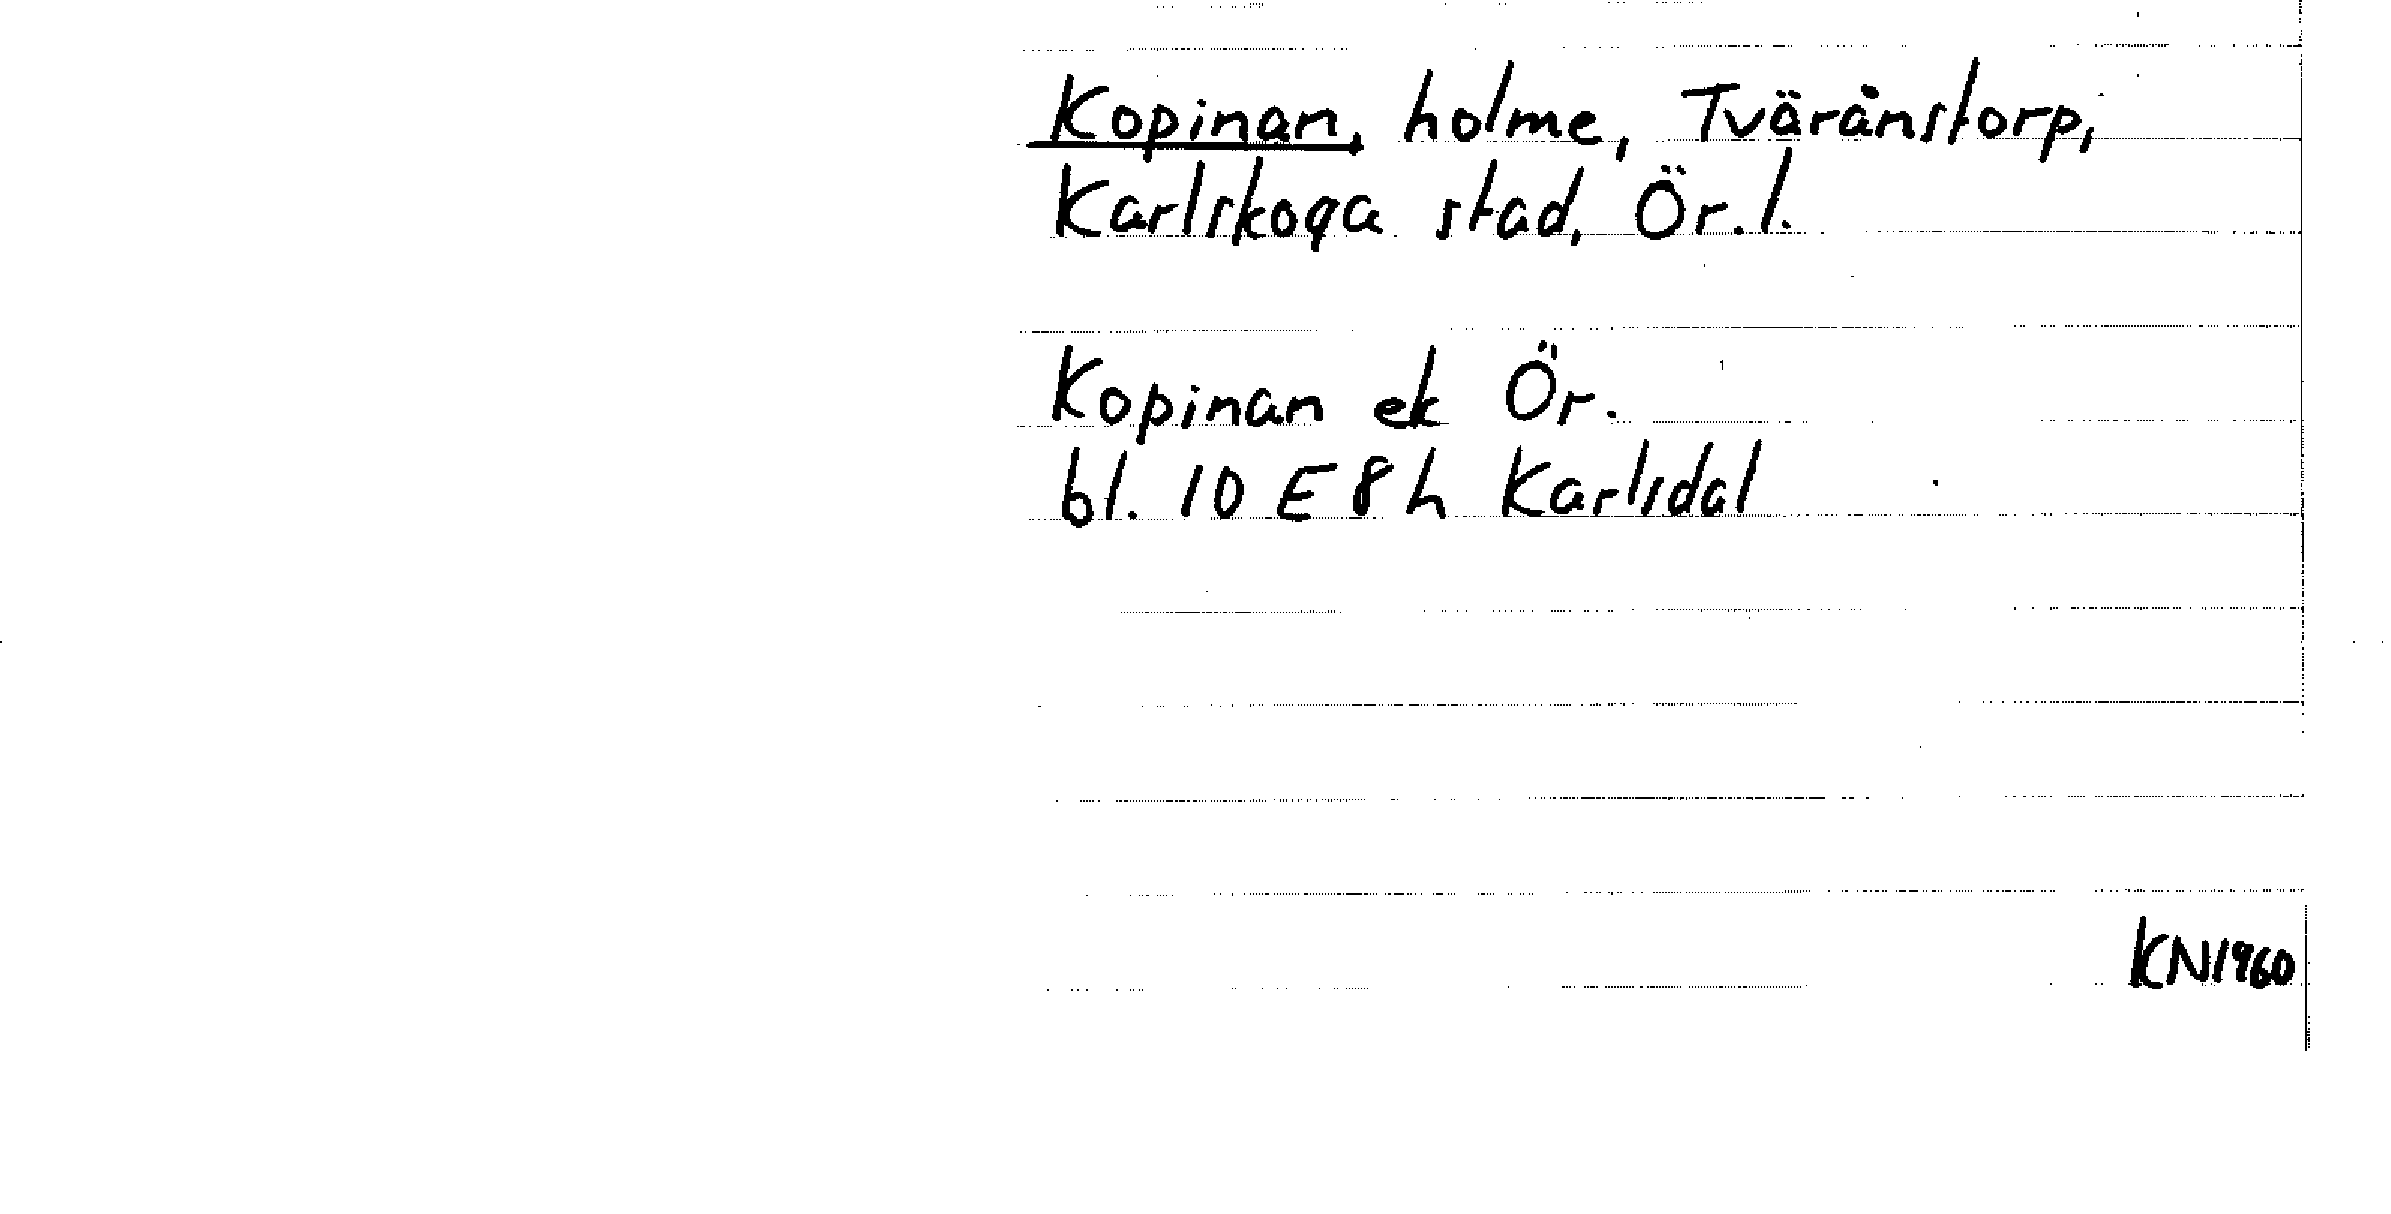 Kopinan, holme, Tväránstorp,
Karlskoga stad, Ör.l.
Kopinan ek Ör.
bl. 10 E 8 h Karlsdal
KN1960